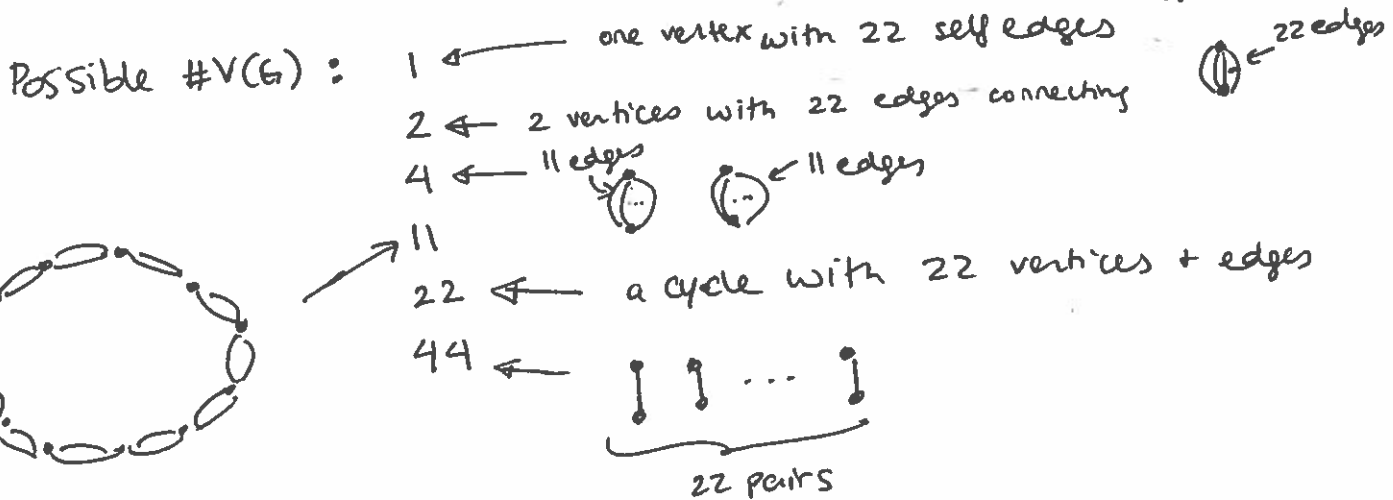 one vertex with 22 self edges
22 edges
Possible #V(G) : 1
2 2 vertices with 22 edges connecting
4 11 edges 11 edges
11
22 a cycle with 22 vertices + edges
44
...
22 pairs